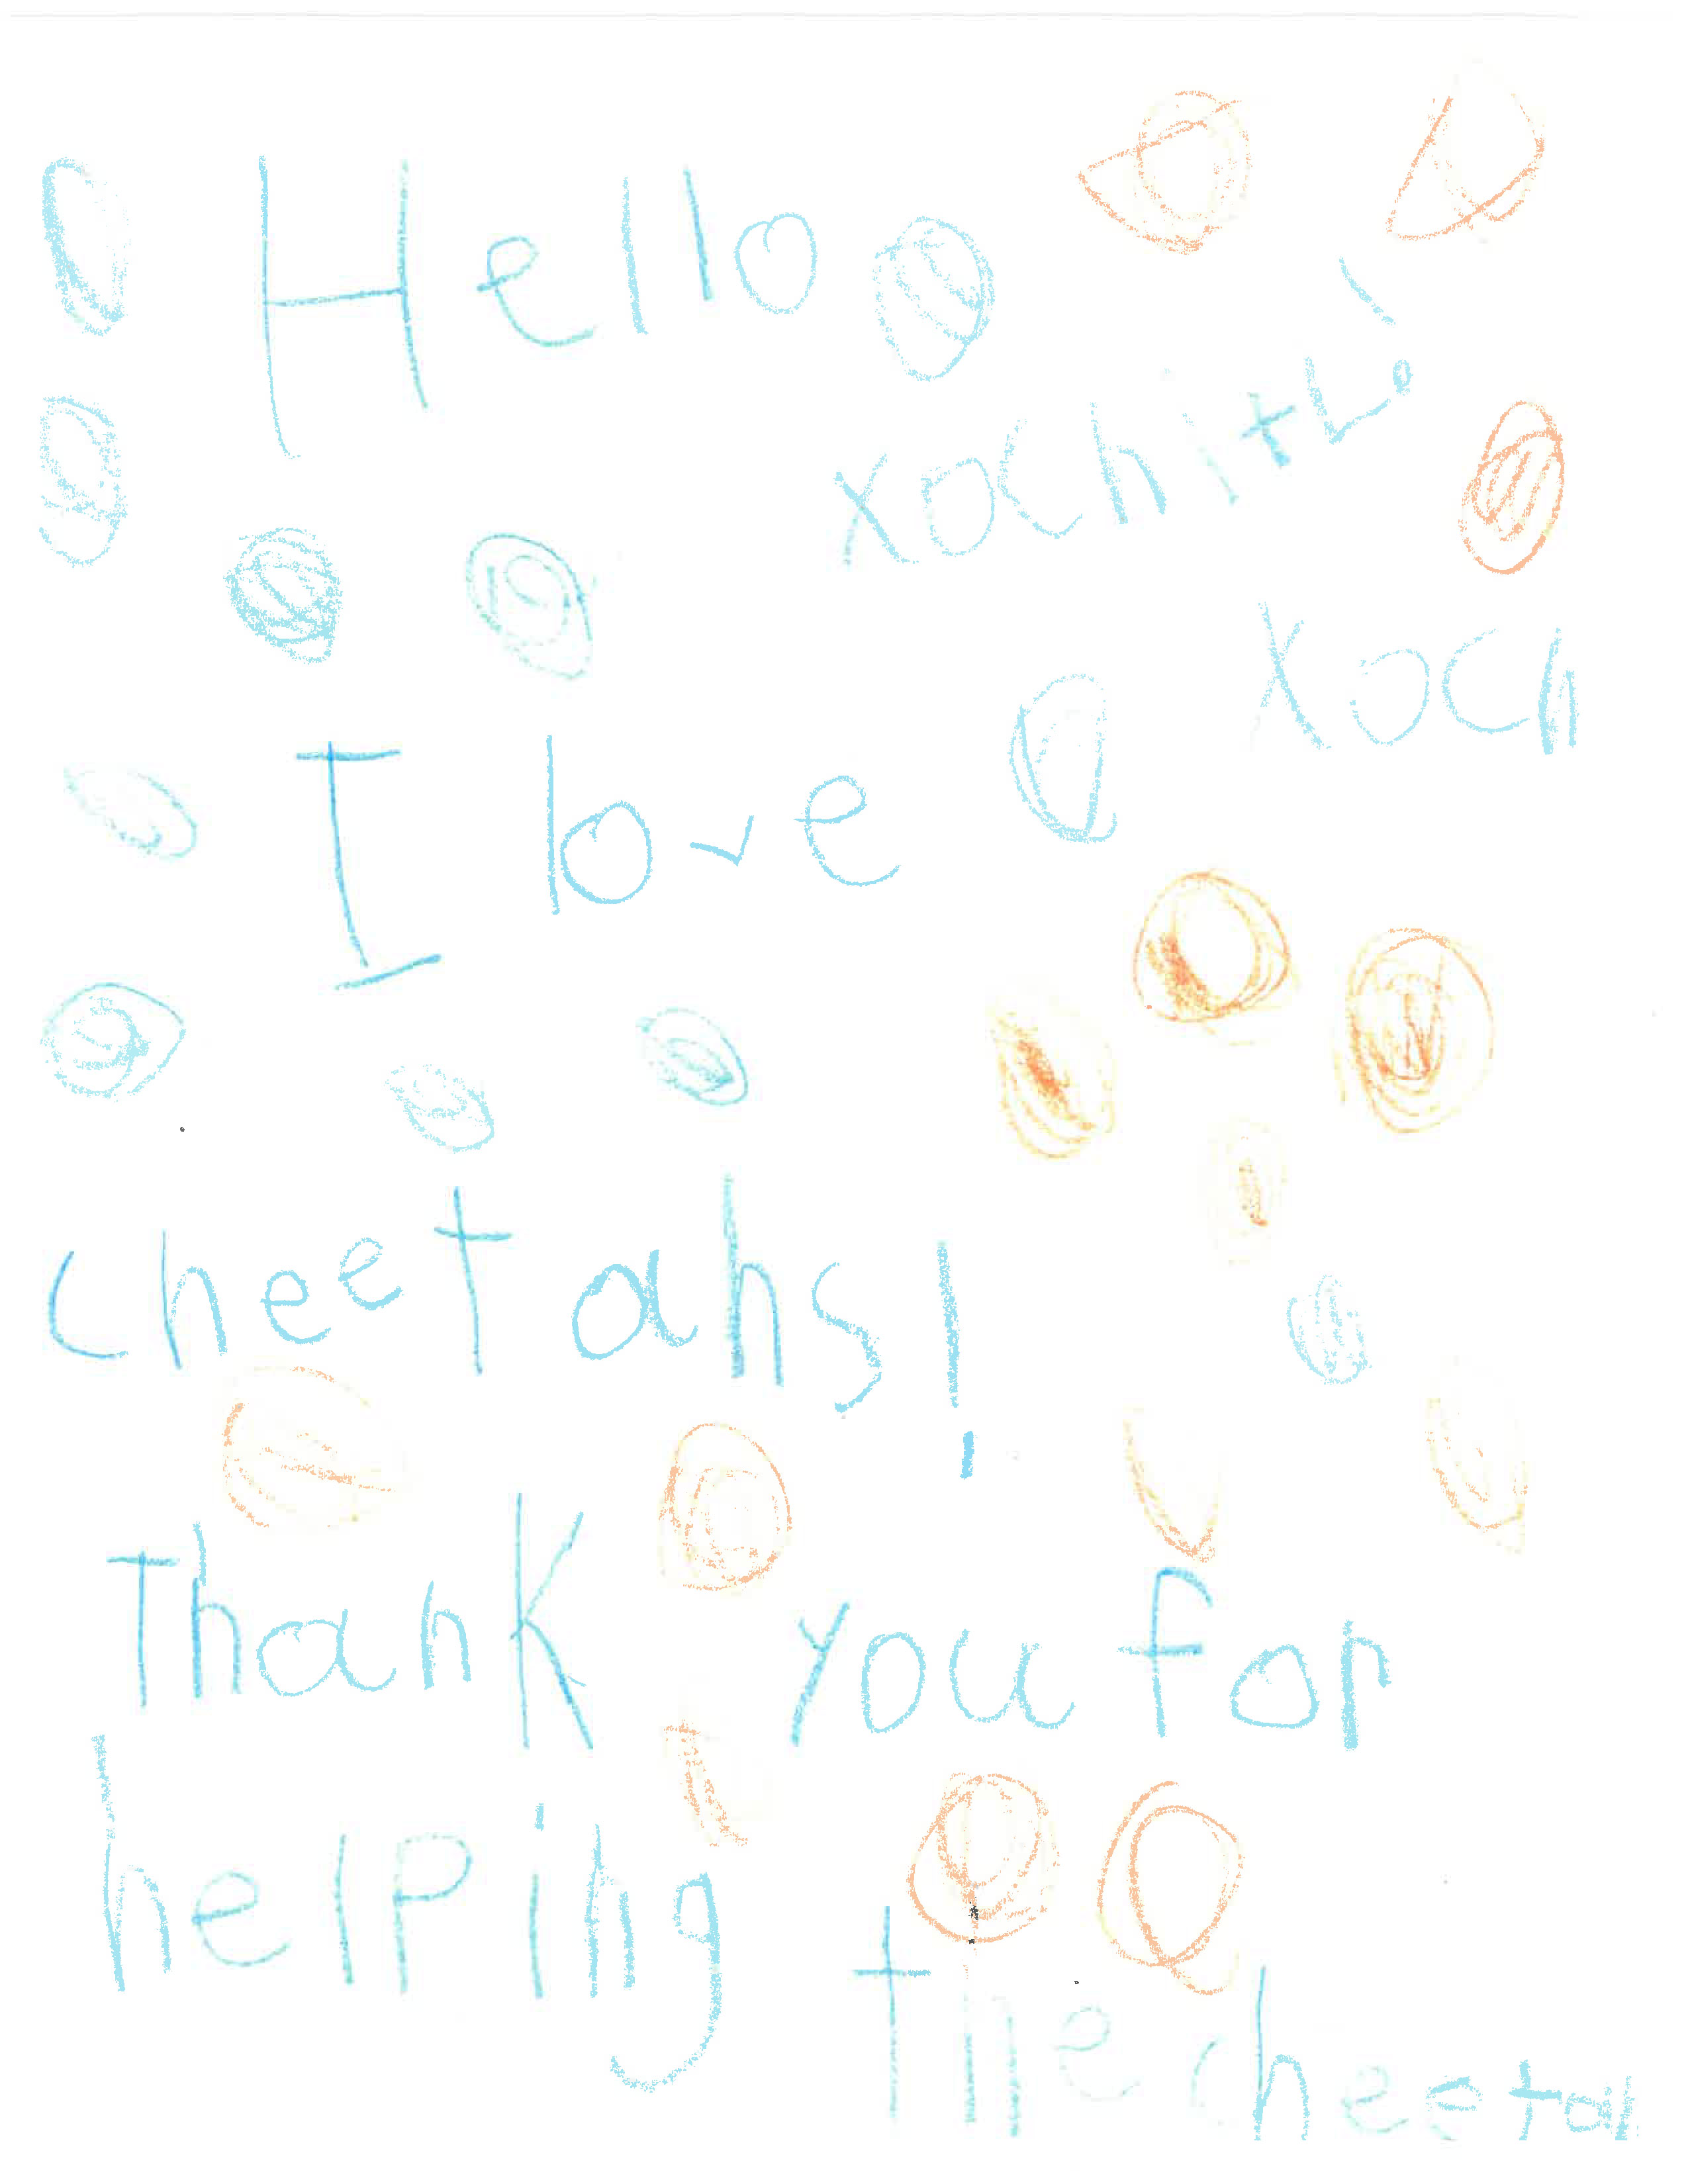 Hello
xochitL!
xoch
I love
cheetahs!
Thank you for
helping
the cheetah